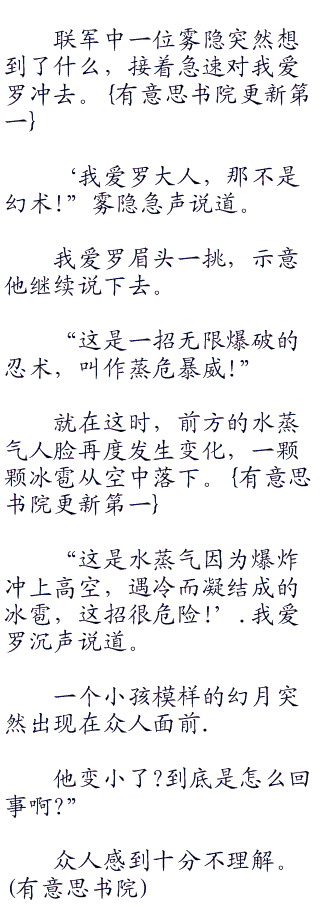 联军中一位雾隐突然想
到了什么，接着急速对我爱
罗冲去。{有意思书院更新第
一}
‘我爱罗大人，那不是
幻术!”雾隐急声说道。
我爱罗眉头一挑，示意
他继续说下去。
“这是一招无限爆破的
忍术，叫作蒸危暴威!”
就在这时，前方的水蒸
气人脸再度发生变化，一颗
颗冰雹从空中落下。{有意思
书院更新第一}
“这是水蒸气因为爆炸
冲上高空，遇冷而凝结成的
冰雹，这招很危险!’.我爱
罗沉声说道。
一个小孩模样的幻月突
然出现在众人面前.
他变小了?到底是怎么回
事啊?”
众人感到十分不理解。
(有意思书院)